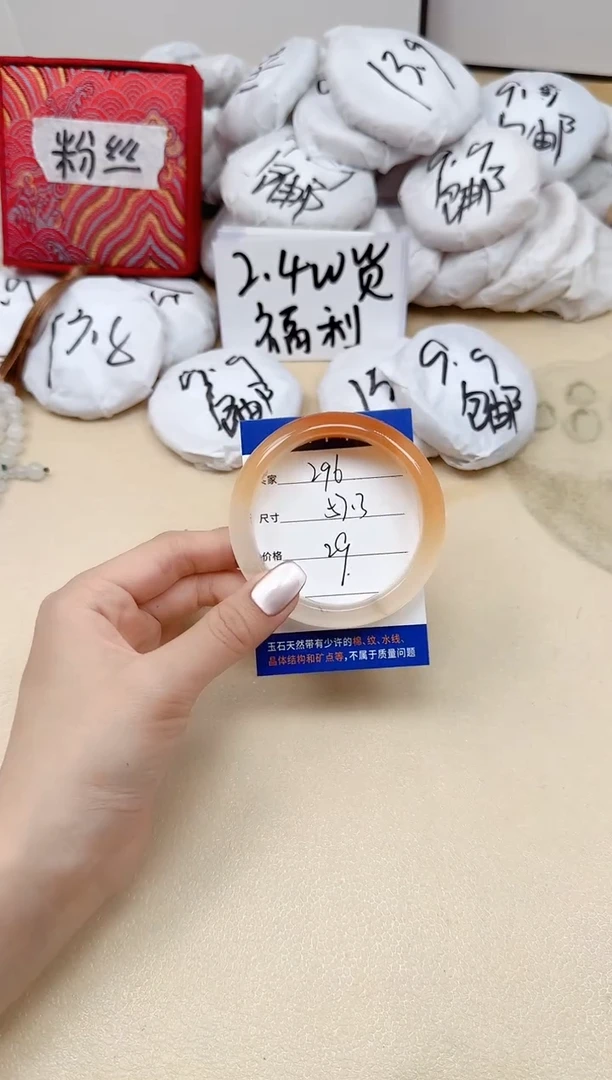 13.9
9.9
包邮
包邮
9.9
包邮
粉丝
2.4W赞
福利
13.8
9.9
包邮
9.9
包邮
家 296
尺寸 57.3
价格 29.
玉石天然带有少许的棉、纹、水线、
晶体结构和矿点等，不属于质量问题